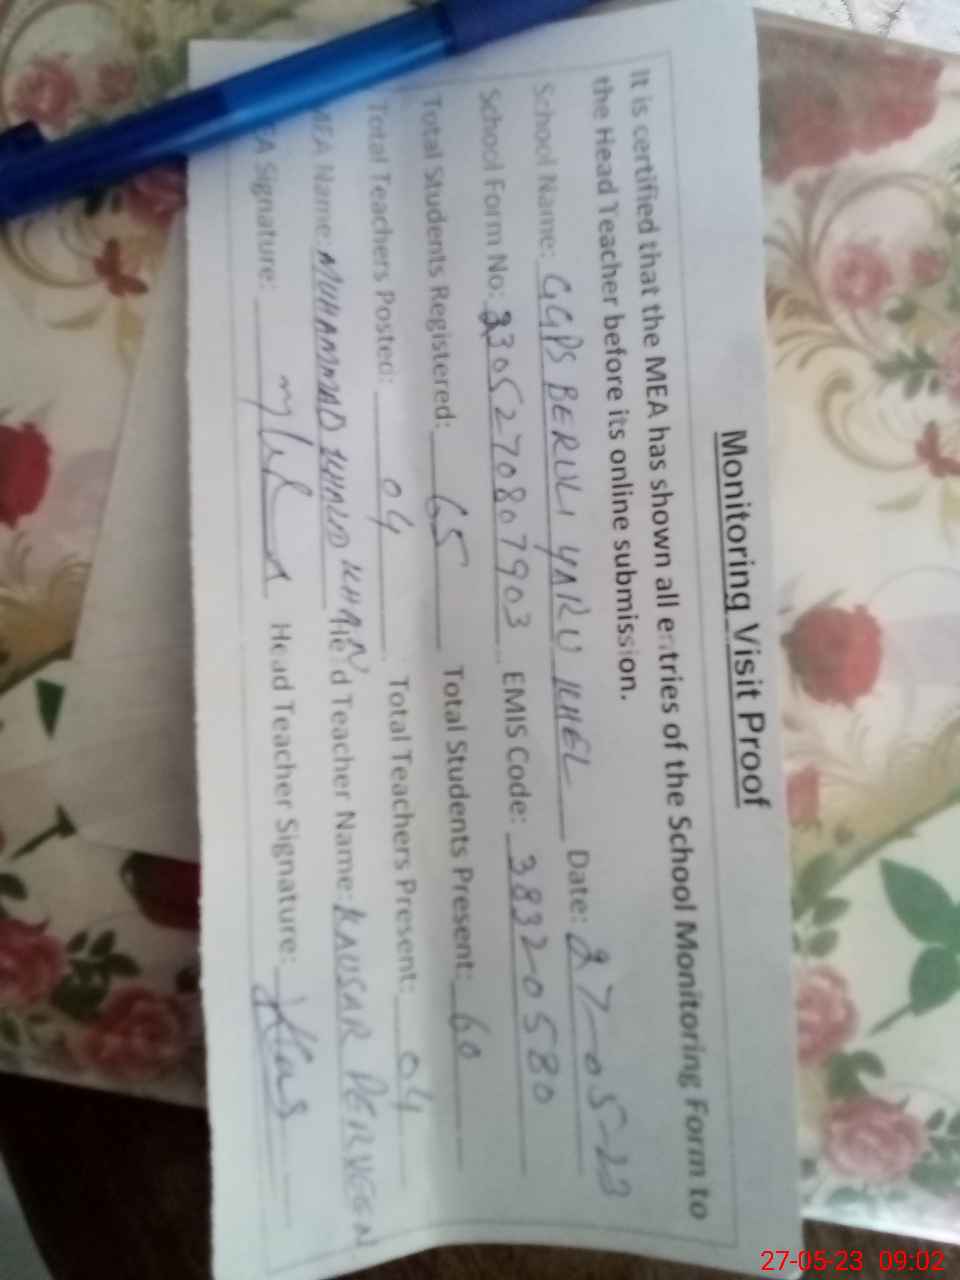 Monitoring Visit Proof
It is certified that the MEA has shown all entries of the School Monitoring Form to
the Head Teacher before its online submission.
School Name: GGPS BERULI YARU KHEL Date: 27-05-23
School Form No: 3305270807903 EMIS Code: 38320580
Total Students Registered: 65 Total Students Present: 60
Total Teachers Posted: 04 Total Teachers Present: 04
MEA Name: MUHAMMAD KHALID KHAN Head Teacher Name: KAUSAR PERVEEN
EA Signature: Head Teacher Signature:
27-05-23 09:02